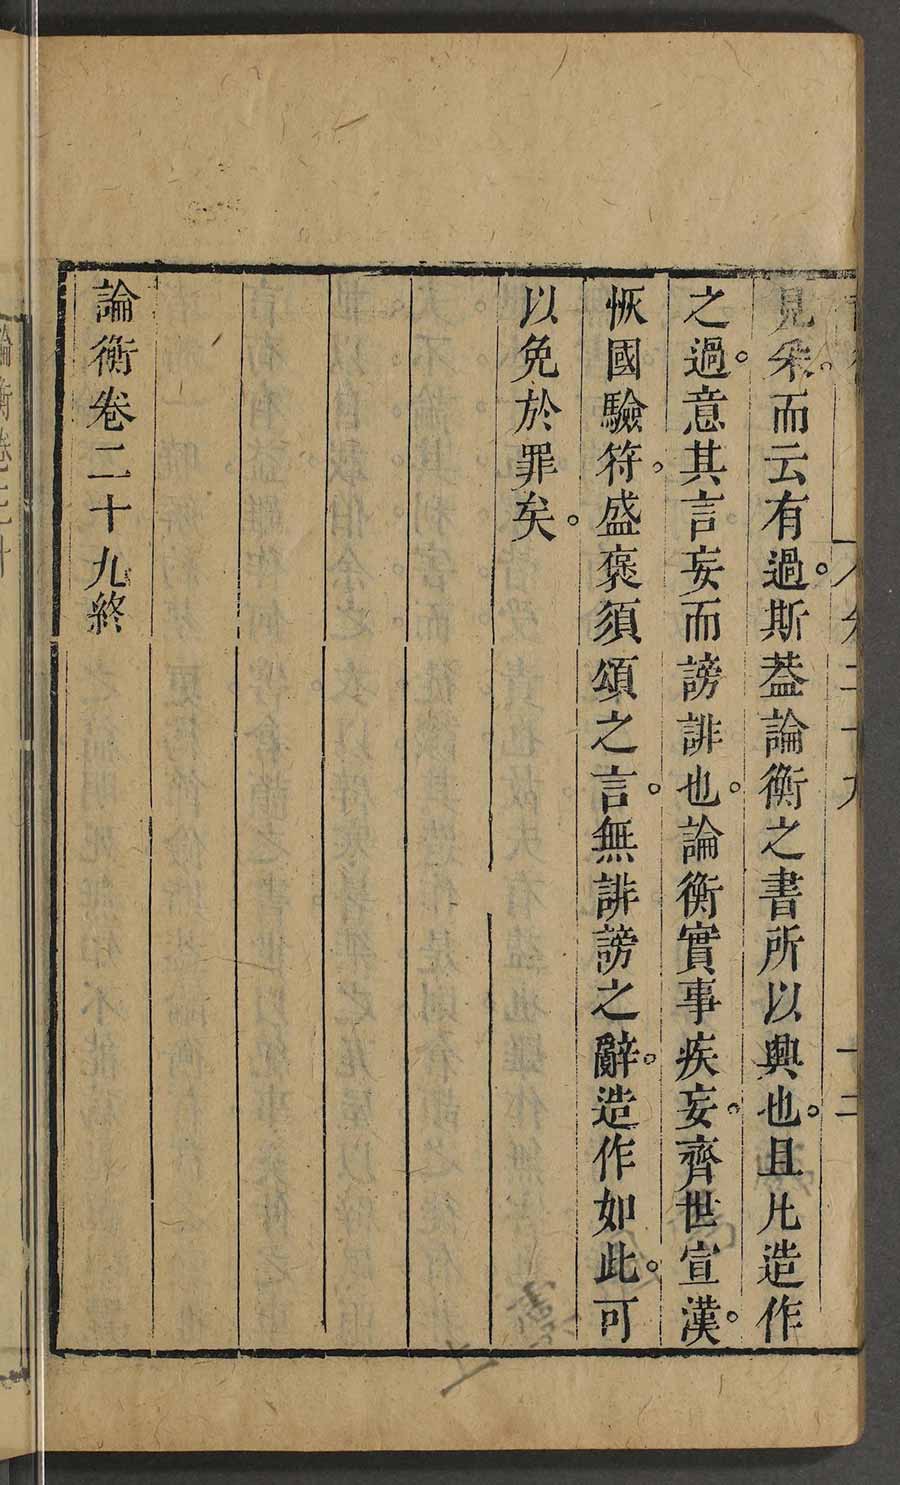 卷二十九
十二
見采。而云有過。斯葢論衡之書所以興也。且凡造作
之過。意其言妄而謗誹也。論衡實事疾妄。齊世宣漢。
恢國驗符。盛褒須頌之言。無誹謗之辭。造作如此。可
以免於罪矣。
論衡卷二十九終